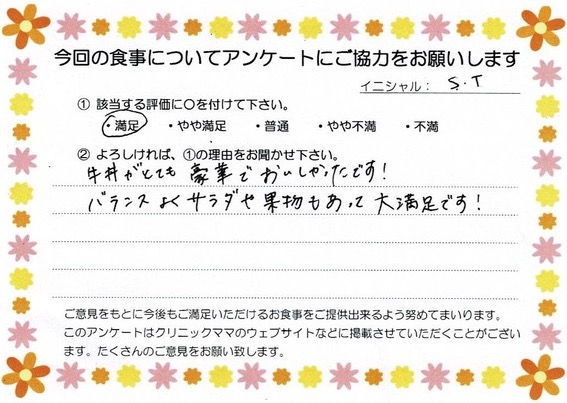 今回の食事についてアンケートにご協力をお願いします
イニシャル： S.T
① 該当する評価に○を付けて下さい。
・満足 ・やや満足 ・普通 ・やや不満 ・不満
② よろしければ、①の理由をお聞かせ下さい。
牛丼がとても豪華でおいしかったです！
バランスよくサラダや果物もあって大満足です！
ご意見をもとに今後もご満足いただけるお食事をご提供出来るよう努めてまいります。
このアンケートはクリニックママのウェブサイトなどに掲載させていただくことがござい
ます。たくさんのご意見をお願い致します。